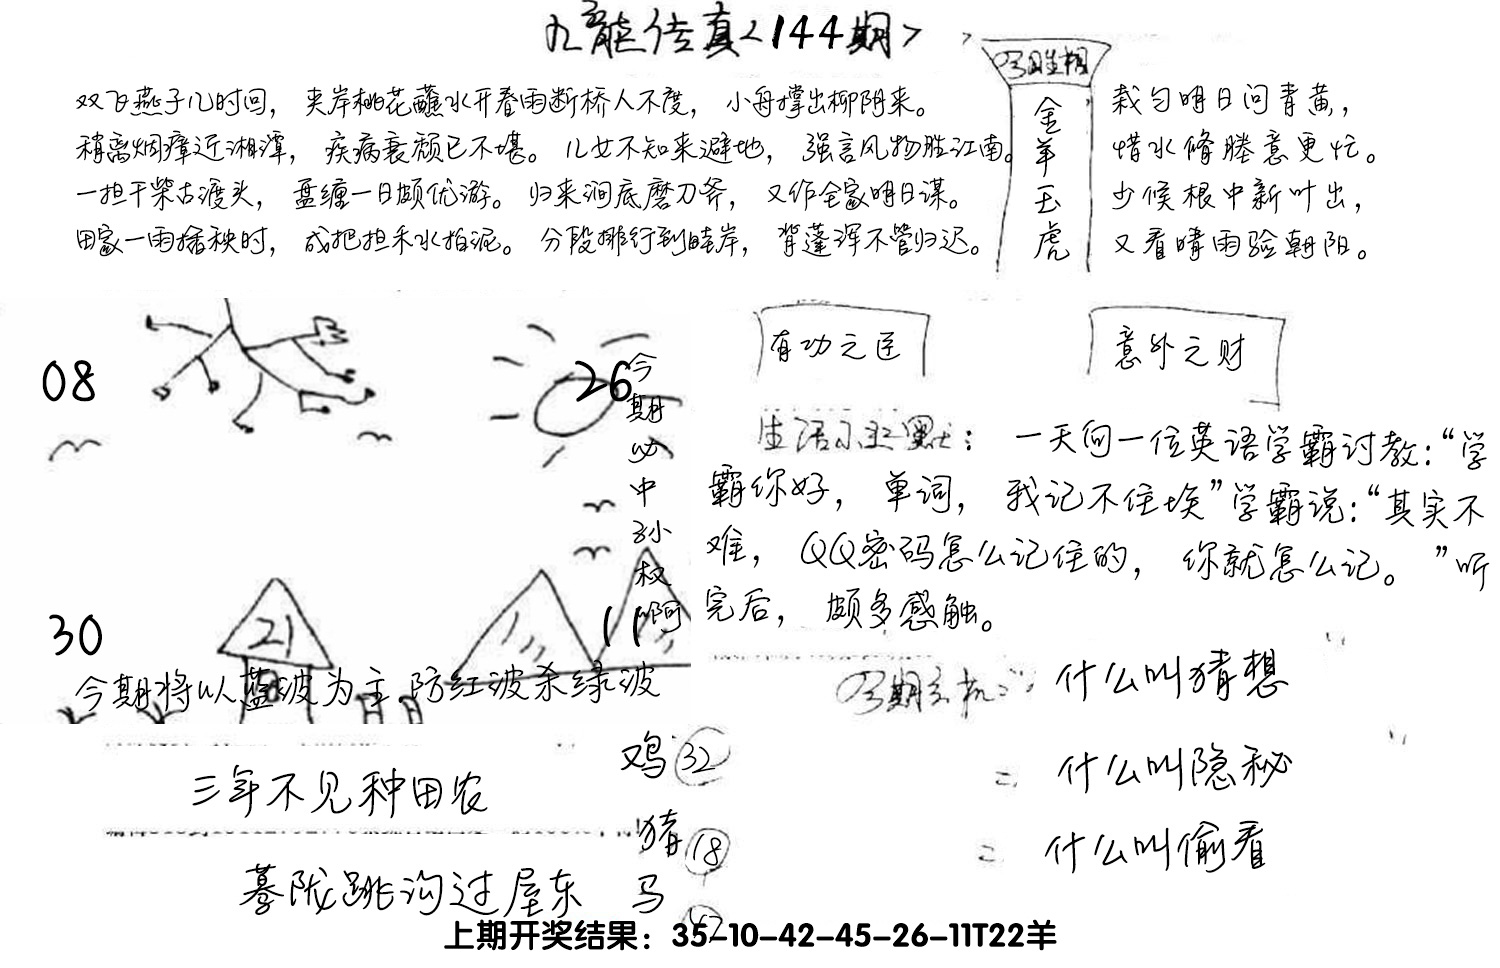 九龙传真<144期>
双飞燕子几时回，夹岸桃花蘸水开春雨断桥人不度，小舟撑出柳阴来。
稍离烟瘴近湘潭，疾病衰颜已不堪。儿女不知来避地，强言风物胜江南。
一担干柴古渡头，盘缠一日颇优游。归来涧底磨刀斧，又作全家明日谋。
田家一雨插秧时，成把担禾水拍泥。分段排行到畦岸，背蓬浑不管归迟。
今日生相
金羊玉虎
栽匀明日问青黄，
惜水脩塍意更忙。
少候根中新叶出，
又看晴雨验朝阳。
08
26
30
21
11
今期必中孙权啊
今期将以蓝波为主.防红波杀绿波
有功之臣
意外之财
生活幽默：一天向一位英语学霸讨教：“学
霸你好，单词，我记不住埃”学霸说：“其实不
难，QQ密码怎么记住的，你就怎么记。”听
完后，颇多感触。
今期玄机：什么叫猜想
= 什么叫隐秘
= 什么叫偷看
三年不见种田农
蓦陇跳沟过屋东
鸡 32
猪 18
马 42
上期开奖结果：35-10-42-45-26-11T22羊